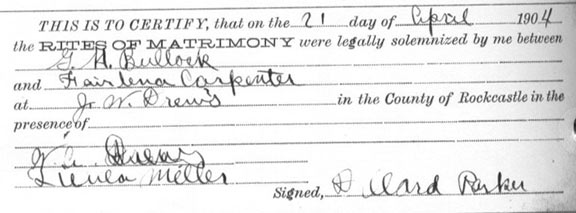 THIS IS TO CERTIFY, that on the 21 day of April 1904
the RITES OF MATRIMONY were legally solemnized by me between
G. H. Bullock
and Fairlena Carpenter
at J. W. Drew's in the County of Rockcastle in the
presence of
W.
Miller
Signed, Dillard Parker